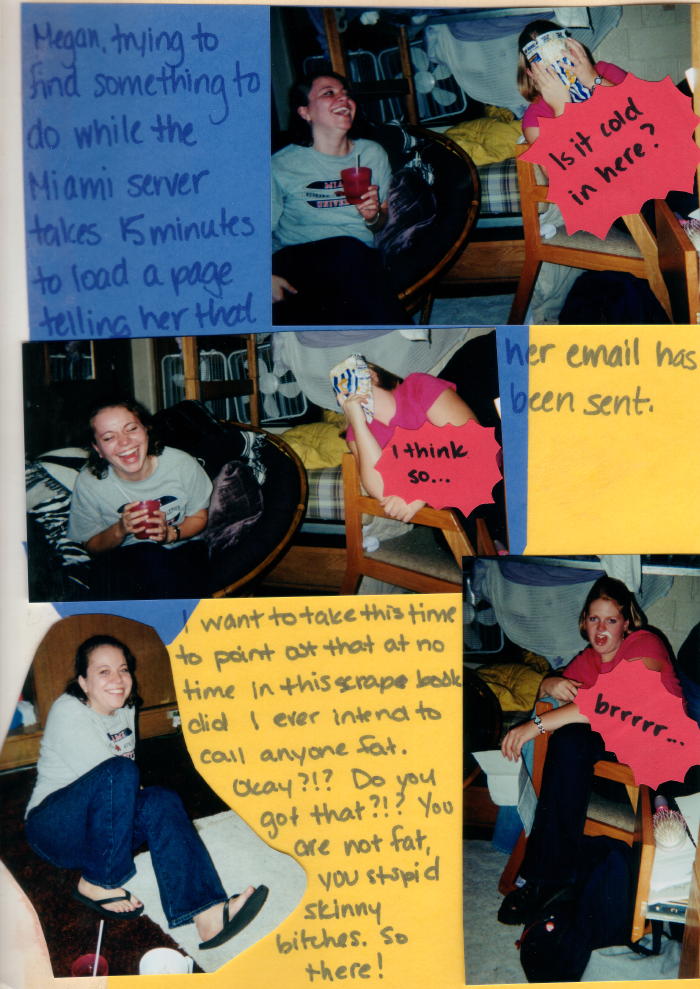 Megan, trying to
find something to
do while the
Miami server
takes 15 minutes
to load a page
telling her that
her email has
been sent.
Is it cold
in here?
I think
so...
I want to take this time
to point out that at no
time in this scrape book
did I ever intend to
call anyone fat.
Okay?!? Do you
got that?!? You
are not fat,
you stupid
skinny
bitches. So
there!
brrrrr...